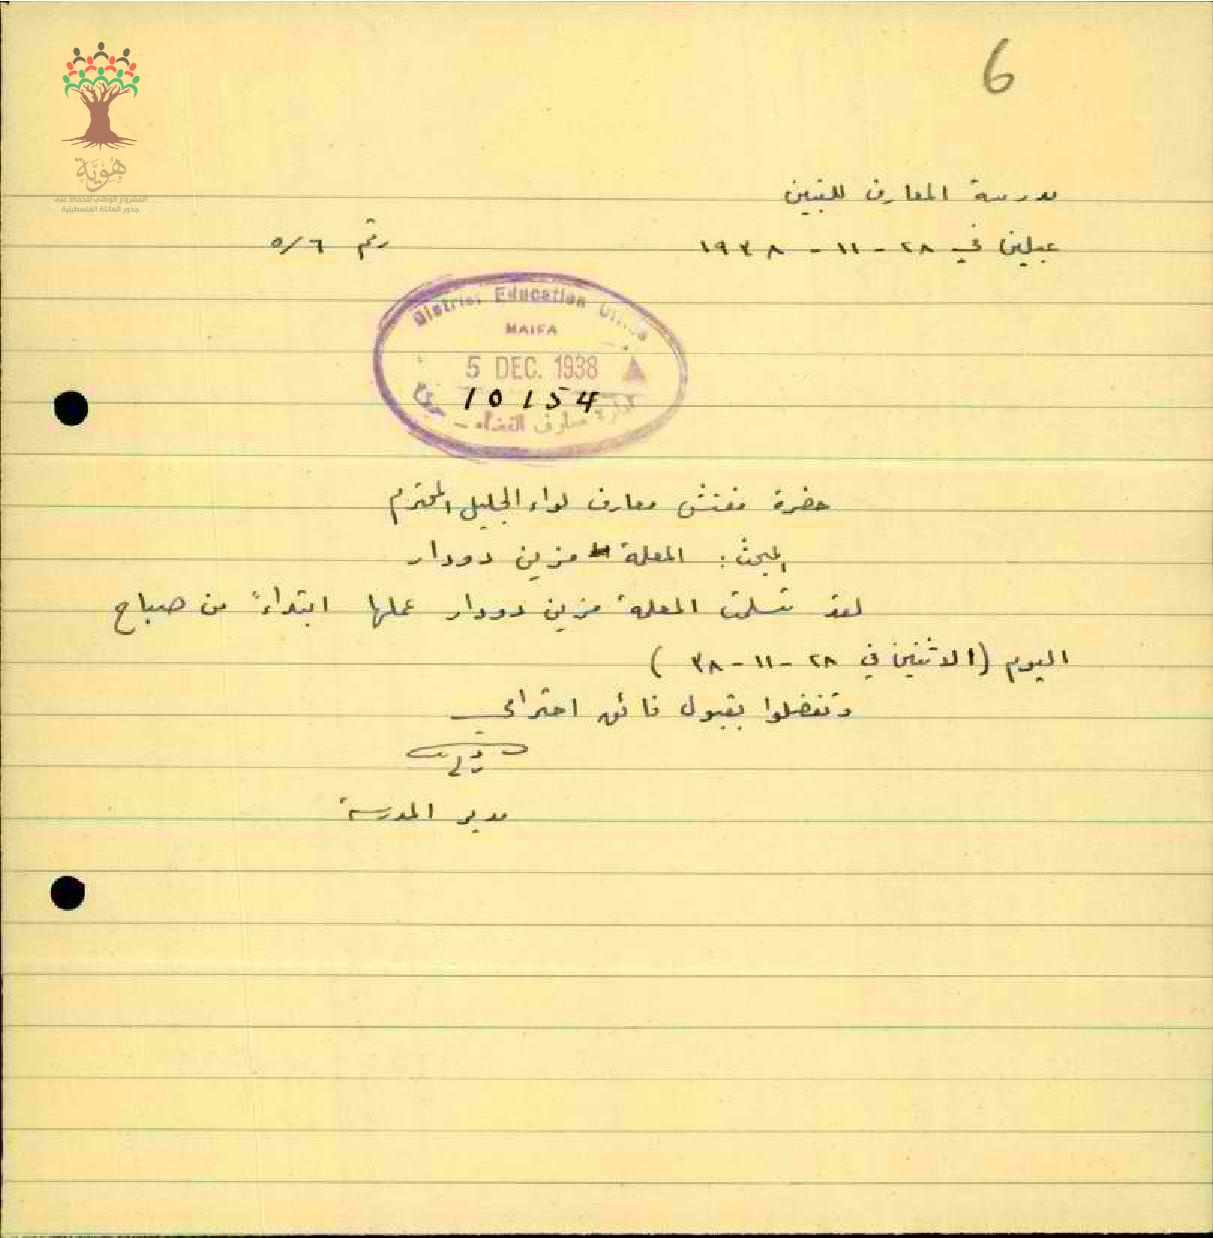 6
هُويَّة
المشروع الوطني للحفاظ على
جذور العائلة الفلسطينية
مدرسة المعارف للبنين
عبلين في ٢٨ - ١١ - ١٩٣٨
رقم ٥/٦
District Education Office
HAIFA
5 DEC. 1938
10154
ادارة معارف القضاء - حيفا
حضرة مفتش معارف لواء الجليل المحترم
المبحث: المعلمة مزين دودار
لقد تسلمت المعلمة مزين دودار عملها ابتداءً من صباح
اليوم (الاثنين في ٢٨ - ١١ - ٣٨)
وتفضلوا بقبول فائق احترامي
مدير المدرسة